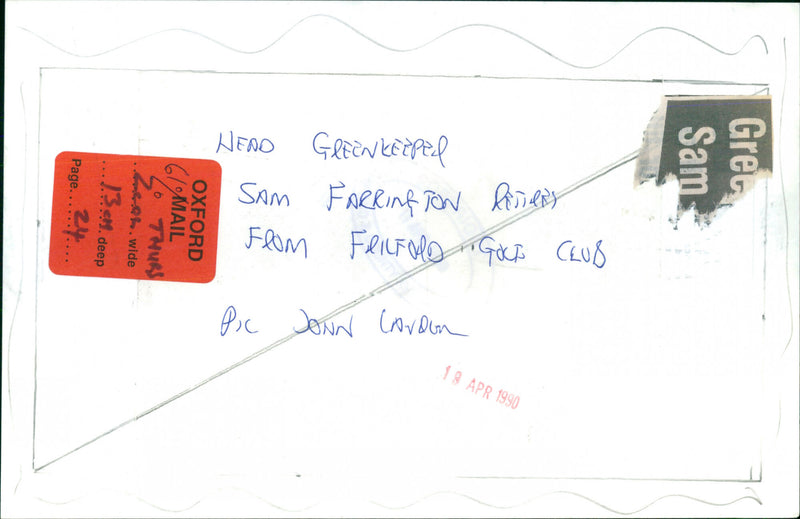 HEAD GREENKEEPER
SAM FARRINGTON RETIRES
FROM FRILFORD GOLF CLUB
PIC JOHN LAWDON
18 APR 1990
OXFORD
MAIL
61%
% THURS
2 COL. wide
13 cm. deep
Page 24
Gree
Sam